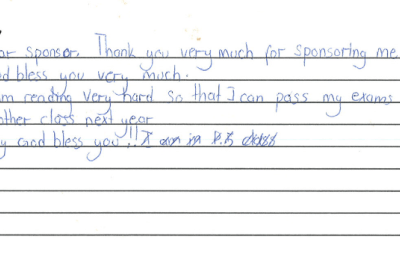 ar sponsor. Thank you very much for sponsoring me.
d bless you very much.
m reading very hard so that I can pass my exams
other class next year
y God bless you!! I am in P.5